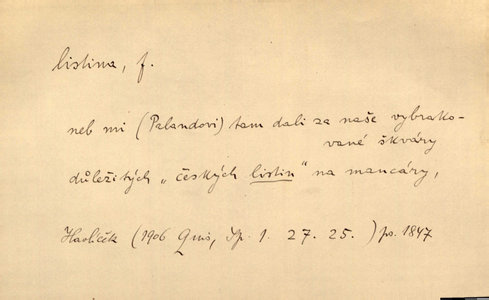 listina, f.
neb mi (Palandovi) tam dali za naše vybrako-
vané škváry
důležitých „českých listin“ na mancáry,
Havlíček (1906 Quis, Sp. 1. 27. 25.) ps. 1847